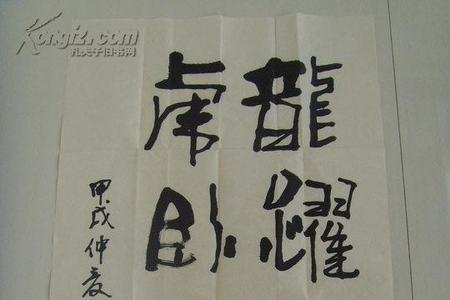 龍躍
虎臥
甲戌仲夏
Kongfz.com
孔夫子旧书网